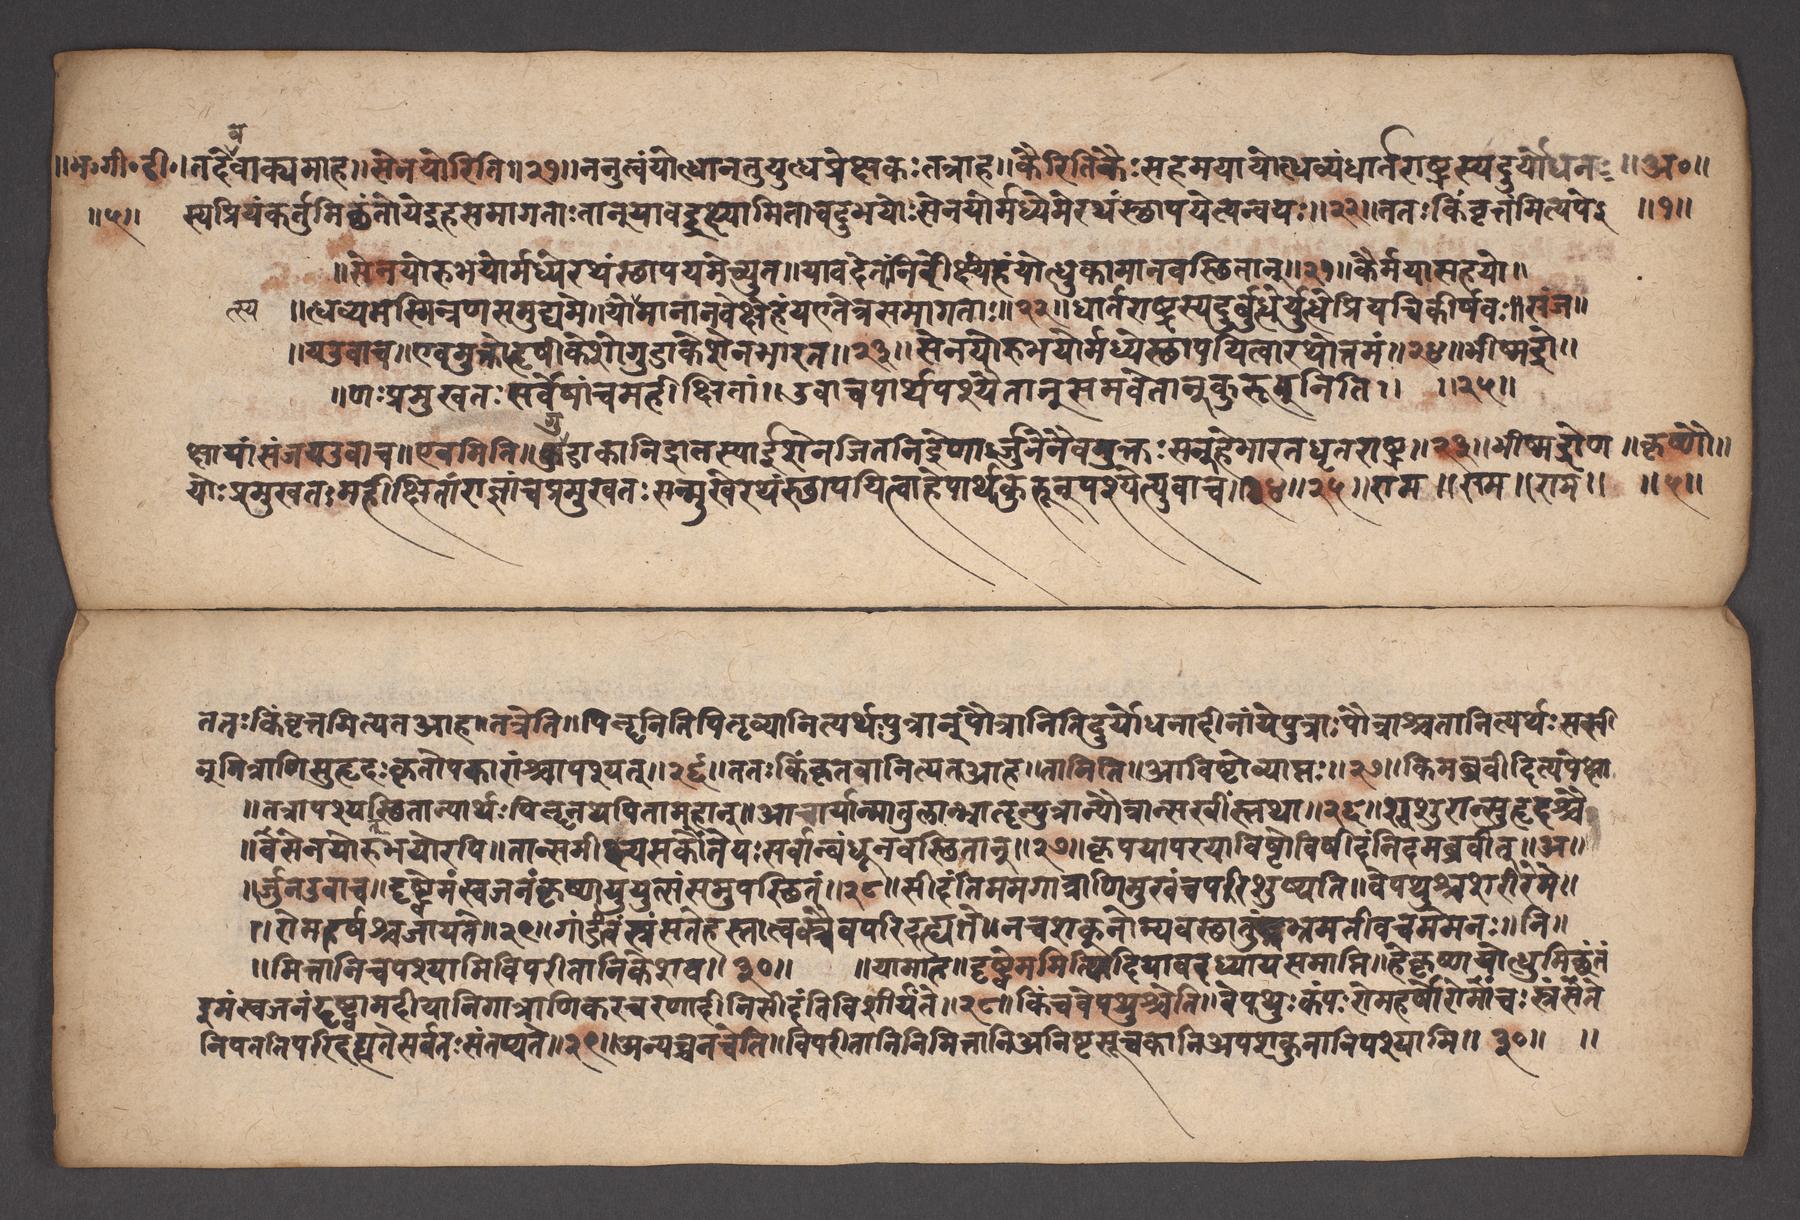 ॥भ॰गी॰टी॰।तदेवाक्यमाह॥सेनयोरिति॥२१॥ननुत्वंयोत्धानतुयुत्धप्रेक्षकःतत्राह॥कैरितिकैःसहमयायोत्धव्यंधार्तराष्ट्रस्यदुर्योधन॥अ०॥
व
॥५॥ स्यप्रियंकर्तुमिछंतोयेइहसमागताःतानूयावद्द्रक्ष्यामितावदुभयोःसेनयोर्मध्येमेरथंस्छापयेत्यन्वयः॥२३॥ततःकिंवृत्तमित्यपे ॥१॥
॥सेनयोरुभयोर्मध्येरथंस्छापयमेच्युत॥यावदेतांनिरीक्ष्येहंयोत्धुकामानवस्छितान्॥२१॥कैर्मयासहयो॥
त्स्य ॥त्धव्यमस्मिन्रणसमुद्यमे॥योमानानवेक्षेहंयएतेत्रसमागताः॥२२॥धार्तराष्ट्रस्यदुर्बुत्धेर्युत्धेप्रियचिकीर्षवः॥संज॥
॥यउवाच॥एवमुक्तोहृषीकेशोगुडाकेशेनभारत॥२३॥सेनयोरुभयोर्मध्येस्छापयित्वारथोत्तमं॥२४॥भीष्मद्रो॥
॥णःप्रमुखतःसर्वेषांचमहीक्षितां॥उवाचपार्थपश्यैतान्समवेतान्कुरूनिति॥ ॥२५॥
गु
क्षायांसंजयउवाच॥एवमिति॥गुडाकानिद्रातस्याईशेनजितनिद्रेणार्जुनेनैवमुक्तःसन्हेभारतधृतराष्ट्र॥२३॥भीष्मद्रोण ॥कृष्णो॥
योःप्रमुखतःमहीक्षितांराज्ञांचप्रमुखतःसन्मुखेरथंस्छापयित्वाहेपार्थकुरून्पश्येत्युवाच॥२४॥२५॥राम ॥राम॥राम॥ ॥५॥
ततःकिंवृत्तमित्यतआह॥तत्रेति॥पितॄनितिपितृव्यानित्यर्थःपुत्रान्पौत्रानितिदुर्योधनादीनांयेपुत्राःपौत्राश्चतानित्यर्थःसखी
न्मित्राणिसुहृदःकृतोपकारांश्चापश्यत्॥२६॥ततःकिंकृतवानित्यतआह॥तानिति॥आविष्टोव्याप्तः॥२७॥किमब्रवीदित्यपेक्षा
॥तत्रापश्यस्छितान्पार्थःपितॄनथपितामहान्॥आचार्यान्मातुलान्भ्रातॄन्पुत्रान्पौत्रान्सखींस्तथा॥२६॥श्वशुरान्सुहृदश्चै
॥वसेनयोरुभयोरपि॥तान्समीक्ष्यसकौंतेयःसर्वान्बंधूनवस्छितान्॥२७॥कृपयापरयाविष्टोविषीदंनिदमब्रवीत्॥अ॥
॥र्जुनउवाच॥दृष्ट्वेमंस्वजनंकृष्णयुयुत्सांसमुपस्छितं॥२८॥सीदंतिममगात्राणिमुखंचपरिशुष्यति॥वेपथुश्चशरीरेमे॥
॥रोमहर्षश्चजायते॥२९॥गांडीवंस्त्रंसतेहस्तात्वक्चैवपरिदह्यते॥नचशक्नोम्यवस्छातुंभ्रमतीवचममनः॥नि॥
॥मित्तानिचपश्यामिविपरीतानिकेशव॥३०॥ ॥यामाह॥दृष्ट्वेममित्यादियावदध्यायसमाप्ति॥हेकृष्णयोत्धुमिछंतं
इमंस्वजनंदृष्ट्वामदीयानिगात्राणिकरचरणादीनिसीदंतिविशीर्यंते॥२८॥किंचवेपथुश्चेति॥वेपथुःकंपःरोमहर्षोरोमांचःस्त्रंसते
निपततिपरिदह्यतेसर्वतःसंतप्यते॥२९॥अन्यच्चनचेति॥विपरीतानिनिमित्तानिअनिष्टसूचकानिअपशकुनानिपश्यामि॥३०॥ ॥